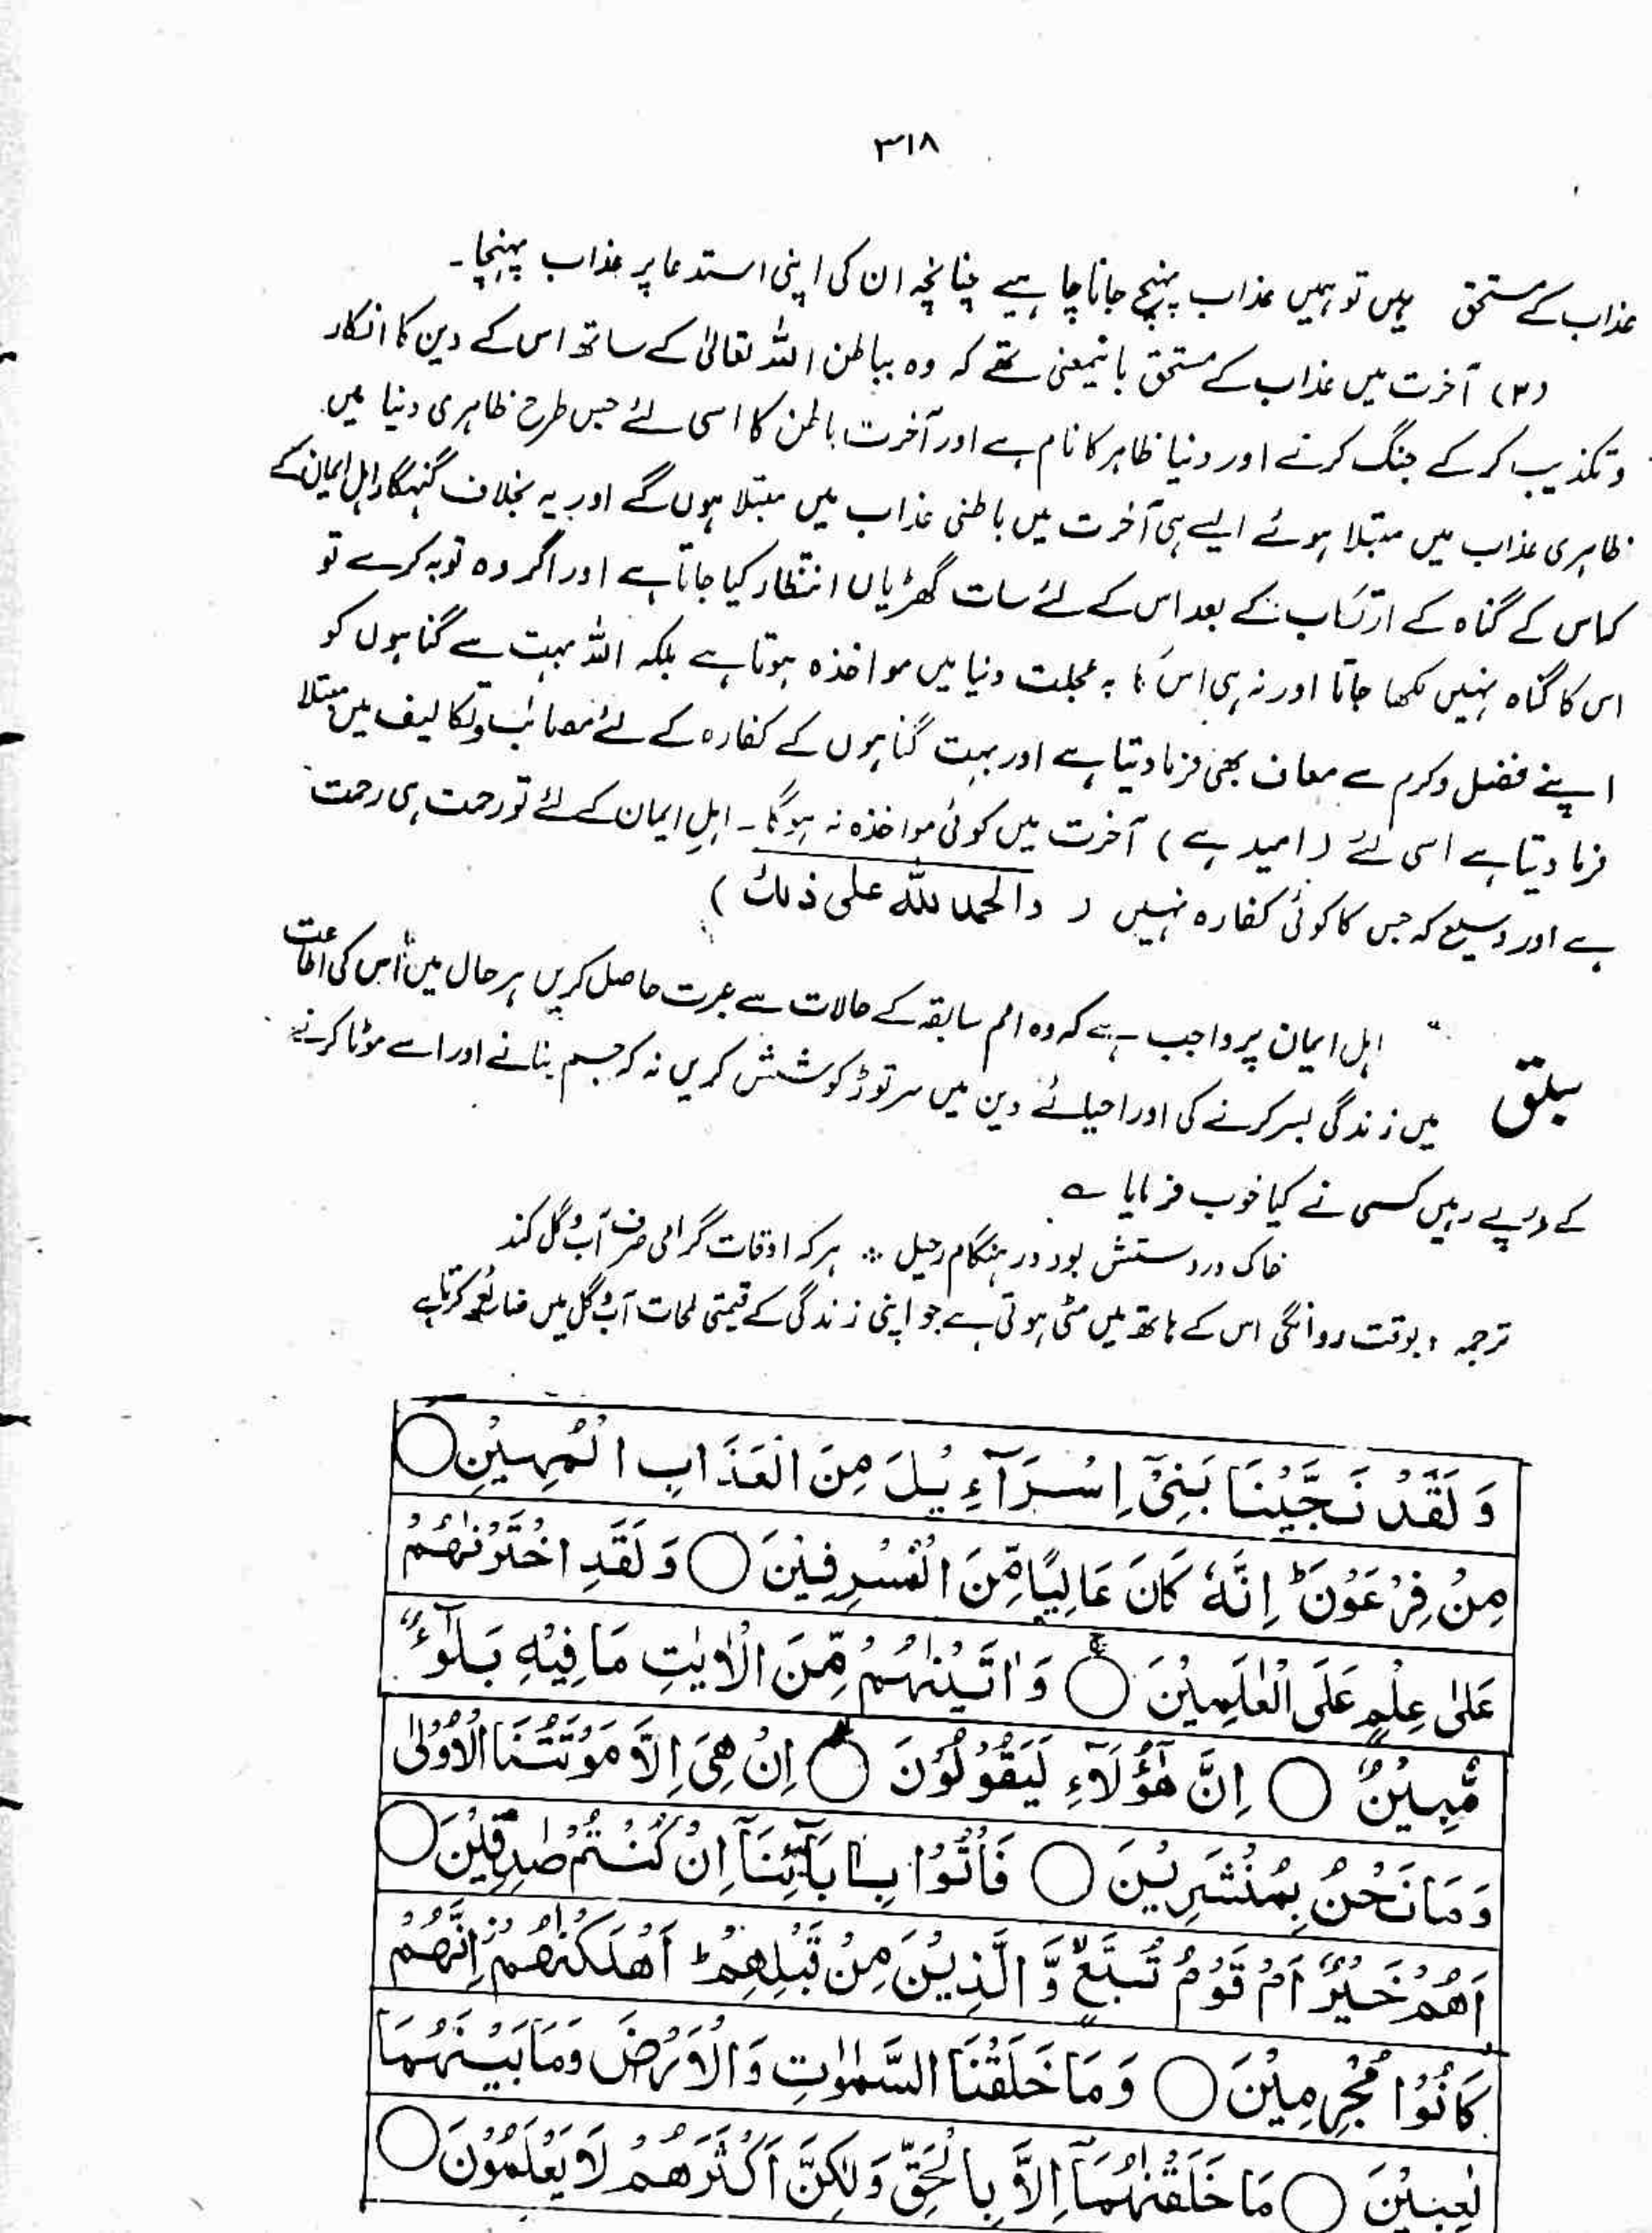 ۳۱۸
عذاب کے مستحق ہیں تو ہمیں عذاب پہنچ جانا چاہیے چنانچہ ان کی اپنی استدعا پر عذاب پہنچا۔
(۳) آخرت میں عذاب کے مستحق بانیمعنی تھے کہ وہ بباطن اللہ تعالیٰ کے ساتھ اس کے دین کا انکار
و تکذیب کر کے جنگ کرتے اور دنیا ظاہر کا نام ہے اور آخرت باطن کا اسی لئے جس طرح ظاہری دنیا میں
ظاہری عذاب میں مبتلا ہوئے ایسے ہی آخرت میں باطنی عذاب میں مبتلا ہوں گے اور یہ بخلاف گنہگار اہل ایمان کے
کہ اس کے گناہ کے ارتکاب کے بعد اس کے لئے سات گھڑیاں انتظار کیا جاتا ہے اور اگر وہ توبہ کرے تو
اس کا گناہ نہیں لکھا جاتا اور نہ ہی اس کا بہ عجلت دنیا میں مواخذہ ہوتا ہے بلکہ اللہ بہت سے گناہوں کو
اپنے فضل و کرم سے معاف بھی فرما دیتا ہے اور بہت گناہوں کے کفارہ کے لئے مصائب و تکالیف میں مبتلا
فرما دیتا ہے اسی لئے (امید ہے) آخرت میں کوئی مواخذہ نہ ہوگا۔ اہل ایمان کے لئے تو رحمت ہی رحمت
ہے اور وسیع کہ جس کا کوئی کفارہ نہیں (والحمد للہ علی ذلک)
سبق
اہل ایمان پر واجب ہے کہ وہ امم سابقہ کے حالات سے عبرت حاصل کریں ہر حال میں اس کی اطاعت
میں زندگی بسر کرنے کی اور احیائے دین میں سر توڑ کوشش کریں نہ کہ جسم بنانے اور اسے موٹا کرنے
کے درپے رہیں کسی نے کیا خوب فرمایا ؎
خاک در دستش بود در ہنگام رحیل ٭ ہر کہ اوقات گرامی صرف آب و گل کند
ترجمہ : بوقت روانگی اس کے ہاتھ میں مٹی ہوتی ہے جو اپنی زندگی کے قیمتی لمحات آب و گل میں ضائع کرتا ہے
وَلَقَدْ نَجَّيْنَا بَنِيْٓ اِسْرَآءِيْلَ مِنَ الْعَذَابِ الْمُهِيْنِ ○
مِنْ فِرْعَوْنَ ؕ اِنَّهٗ كَانَ عَالِيًا مِّنَ الْمُسْرِفِيْنَ ○ وَلَقَدِ اخْتَرْنٰهُمْ
عَلٰى عِلْمٍ عَلَى الْعٰلَمِيْنَ ○ وَاٰتَيْنٰهُمْ مِّنَ الْاٰيٰتِ مَا فِيْهِ بَلٰٓؤٌا
مُّبِيْنٌ ○ اِنَّ هٰٓؤُلَآءِ لَيَقُوْلُوْنَ ○ اِنْ هِيَ اِلَّا مَوْتَتُنَا الْاُوْلٰى
وَمَا نَحْنُ بِمُنْشَرِيْنَ ○ فَاْتُوْا بِاٰبَآئِنَآ اِنْ كُنْتُمْ صٰدِقِيْنَ ○
اَهُمْ خَيْرٌ اَمْ قَوْمُ تُبَّعٍ ۙ وَّالَّذِيْنَ مِنْ قَبْلِهِمْ ؕ اَهْلَكْنٰهُمْ ۡ اِنَّهُمْ
كَانُوْا مُجْرِمِيْنَ ○ وَمَا خَلَقْنَا السَّمٰوٰتِ وَالْاَرْضَ وَمَا بَيْنَهُمَا
لٰعِبِيْنَ ○ مَا خَلَقْنٰهُمَآ اِلَّا بِالْحَقِّ وَلٰكِنَّ اَكْثَرَهُمْ لَا يَعْلَمُوْنَ ○